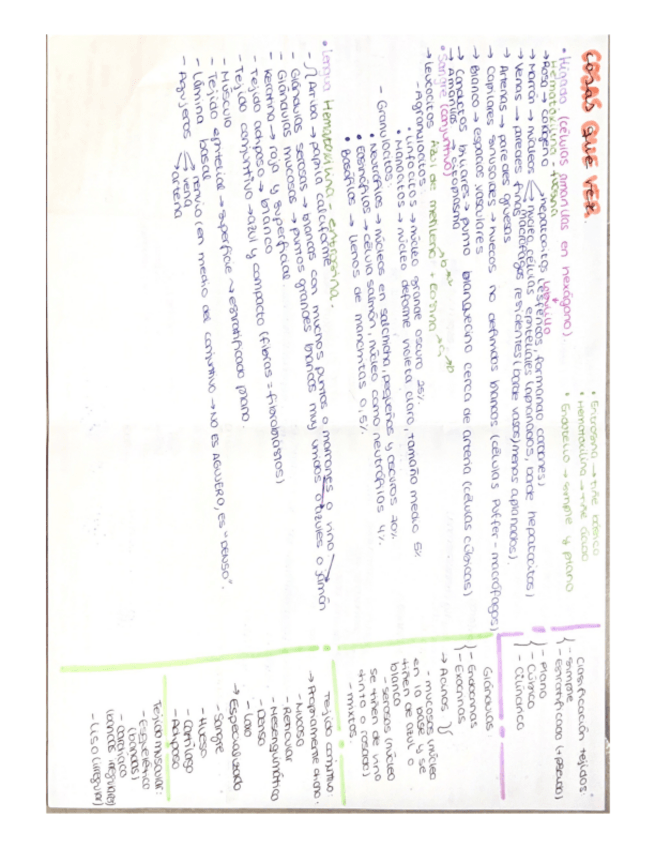 COSAS QUE VER.
• Hígado (células amarillas en hexágono).
Hematoxilina - eosina
→ Rosa → colágeno
→ Marrón → núcleos
hepatocitos (esféricos, formando cordones)
núcleo células epiteliales (aplanados, borde hepatocitos)
macrófagos residentes (borde vasos) menos aplanados).
→ Venas → paredes finas
→ Arterias → paredes gruesas
→ Capilares sinusoides → huecos no definidos blancos (células Kuffer - macrófagos)
→ Blanco → espacios vasculares
→ Conductos biliares → punto blanquecino cerca de arteria (células cúbicas)
→ Amarillas → citoplasma
• Sangre (conjuntivo) Azul de metileno + Eosina
→ Leucocitos
- Agranulocitos:
• Linfocitos → núcleo grande oscuro 25%
• Monocitos → núcleo deforme violeta claro, tamaño medio 5%
- Granulocitos:
• Neutrófilos → núcleos en salchicha, pequeños y oscuros 70%
• Eosinófilos → célula salmón, núcleo como neutrófilos 4%
• Basófilos → llenos de manchitas 0,5%
• Lengua Hematoxilina - eritrosina.
- Arriba → papila caliciforme
- Glándulas serosas → blancas con muchos puntos o marrones o vino
- Glándulas mucosas → puntos grandes blancos muy unidos o azules o jamón
- Keratina → roja y superficial
- Tejido adiposo → blanco
- Tejido conjuntivo → azul y compacto (fibras = fibroblastos)
- Músculo
- Tejido epitelial → superficie → estratificado plano.
- Lámina basal
- Agujeros
nervio (en medio del conjuntivo → NO ES AGUJERO, ES "DENSO".
vena
arteria
• Eritrosina → tiñe básico
• Hematoxilina → tiñe ácido
• Endotelio → simple y plano
Clasificación tejidos:
- Simple
- Estratificado (+ pseudo)
- Plano
- Cúbico
- Cilíndrico
Glándulas
- Endocrinas
- Exocrinas
→ Acinos
- mucosas (núcleo en la base y se tiñen de azul o blanco
- serosas (núcleo se tiñen de vino tinto o rosado)
- mixtos
Tejido conjuntivo:
→ Propiamente dicho.
- Mucoso
- Reticular
- Mesenquimático
- Denso
- Laxo
→ Especializado
- Sangre
- Hueso
- Cartílago
- Adiposo
Tejido muscular:
- Esquelético (bandas)
- Cardiaco (bandas irregulares)
- Liso (irregular)